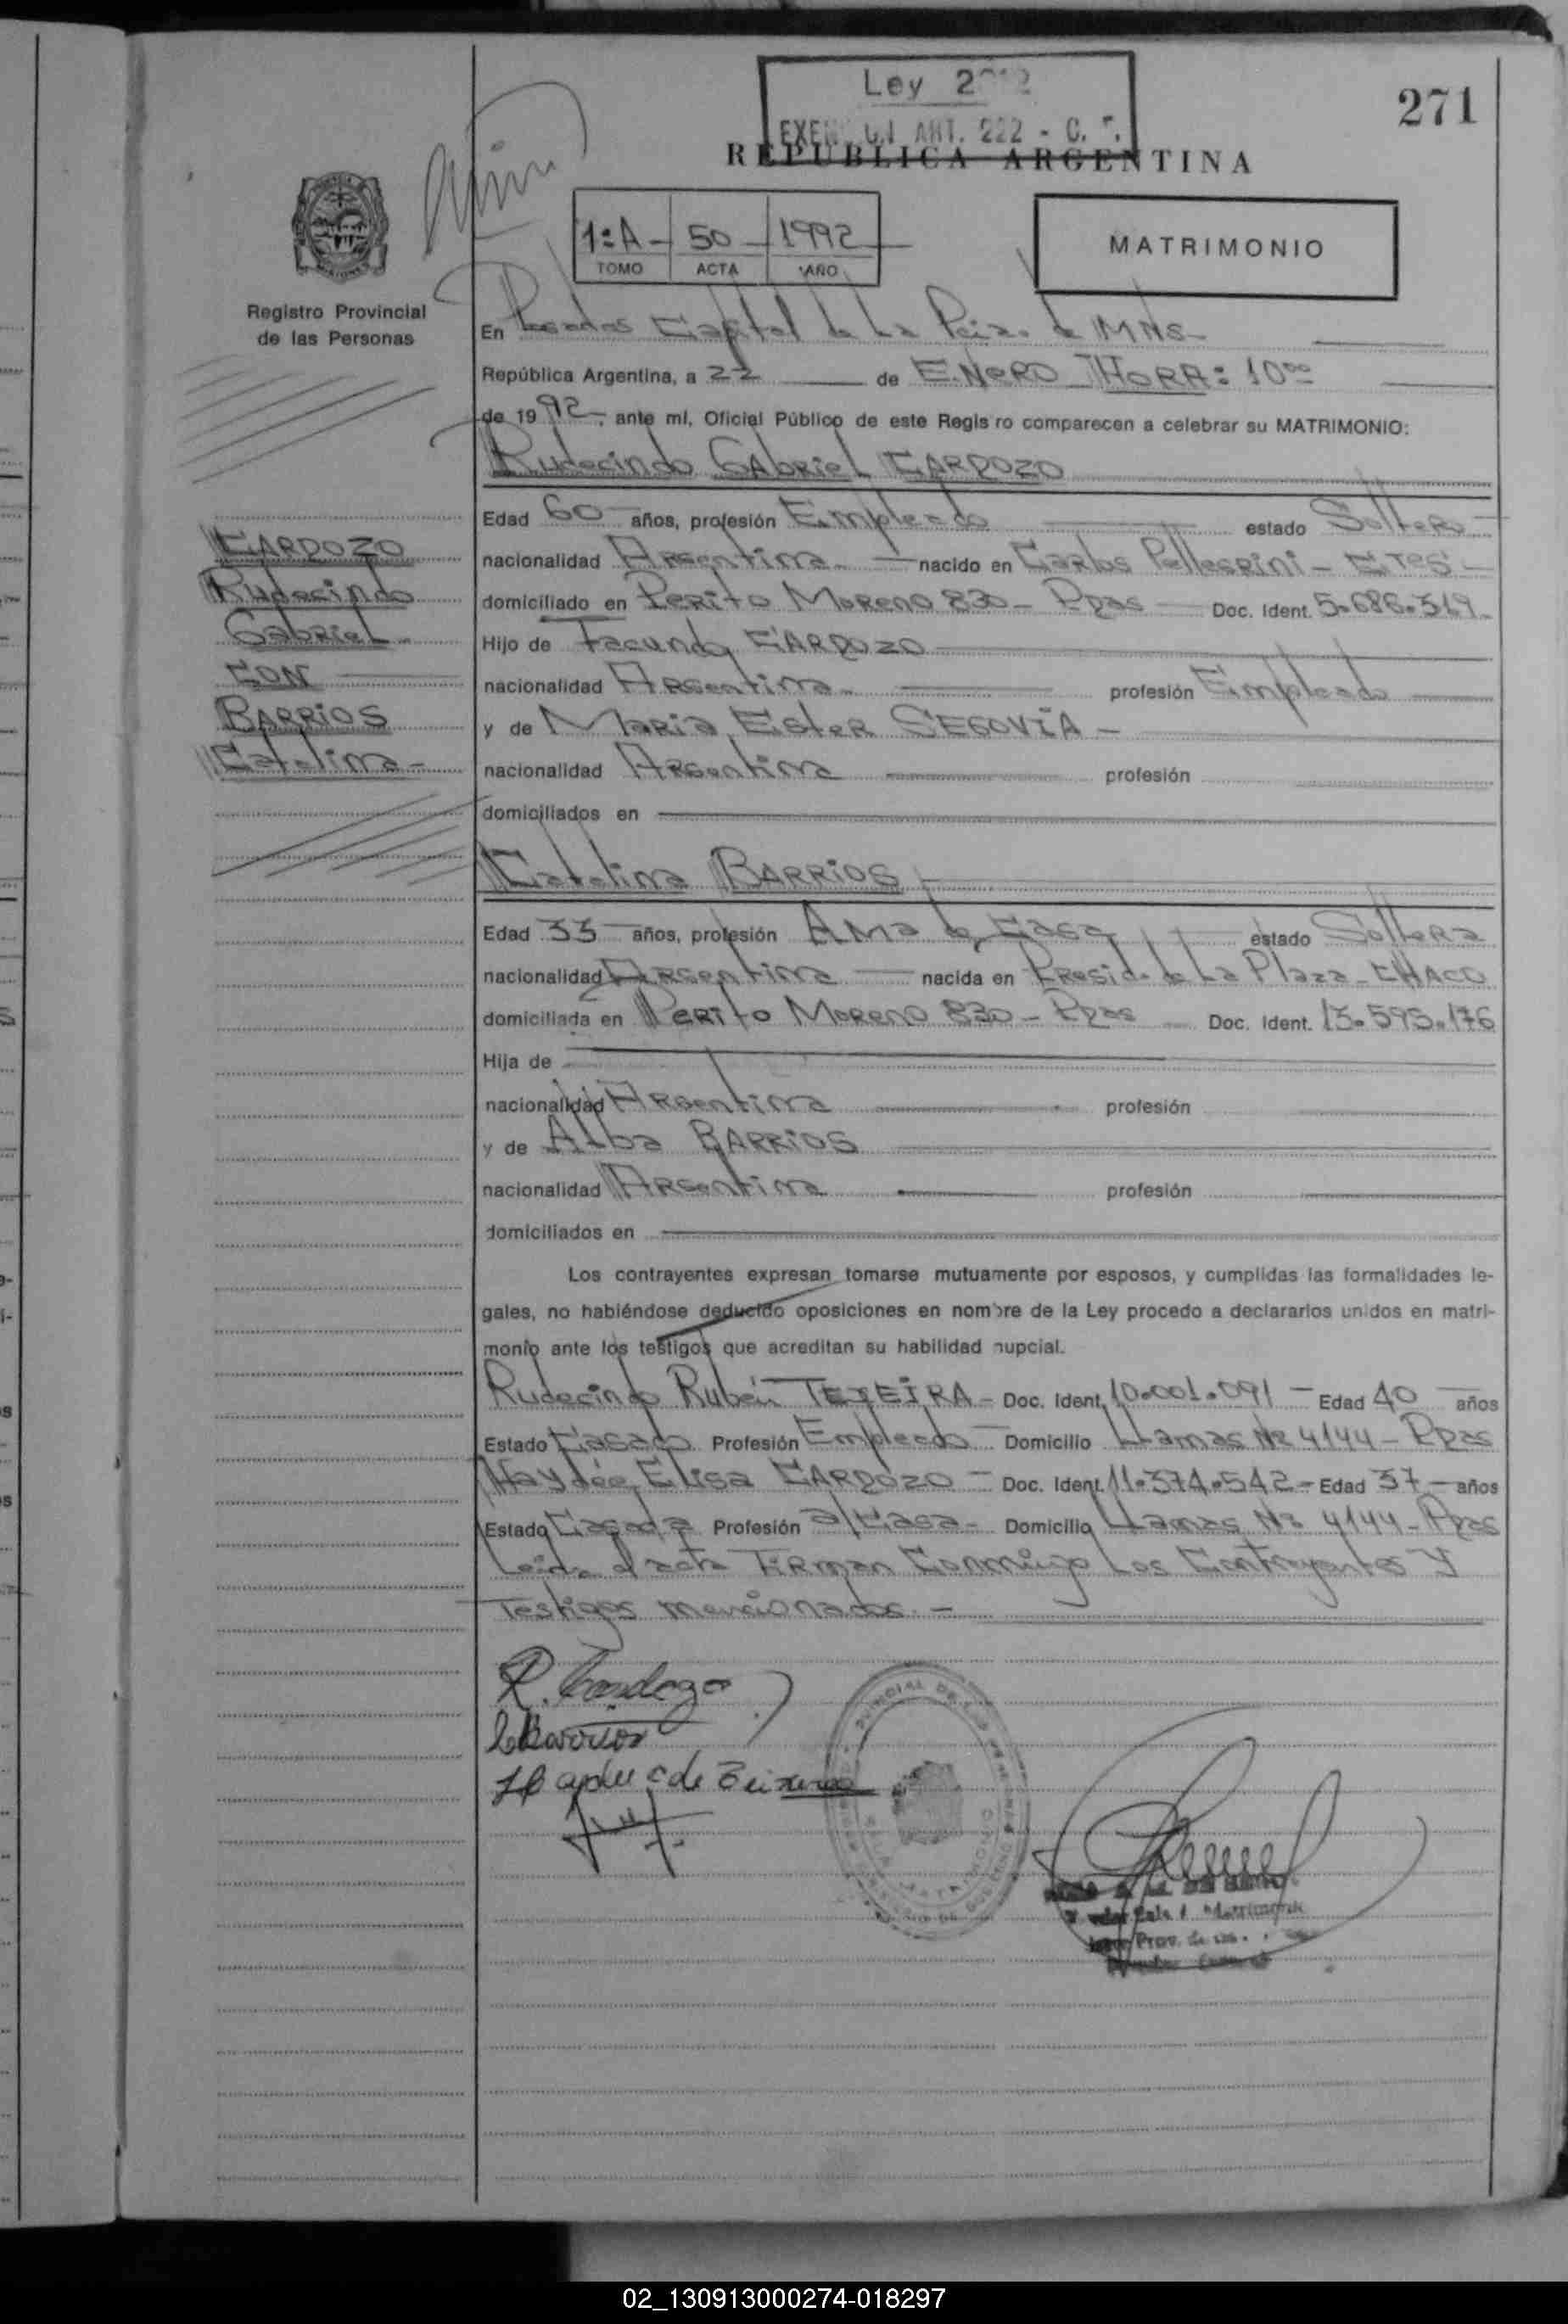 Ley
EXEN ART. 222 - C.
271
REPUBLICA ARGENTINA
1ºA - 50 - 1992
TOMO ACTA AÑO
MATRIMONIO
Registro Provincial
de las Personas
En Posadas Capital de La Pcia. de MNS-
República Argentina, a 22 de ENERO HORA: 10oo
de 1992, ante mí, Oficial Público de este Regis ro comparecen a celebrar su MATRIMONIO:
Rudecindo Gabriel CARDOZO
Edad 60 años, profesión Empleado estado Soltero
nacionalidad Argentina nacido en Carlos Pellegrini - CTES -
domiciliado en Perito Moreno 830 - Ppas Doc. Ident. 5.686.319
Hijo de Facundo CARDOZO
nacionalidad Argentina profesión Empleado
y de Maria Ester SEGOVIA -
nacionalidad Argentina profesión
domiciliados en
CARDOZO
Rudecindo
Gabriel
CON
BARRIOS
Catalina -
Catalina BARRIOS
Edad 33 años, profesión Ama de Casa estado Soltera
nacionalidad Argentina nacida en Presid. de La Plaza - CHACO
domiciliada en Perito Moreno 830 - Ppas Doc. Ident. 13.593.176
Hija de
nacionalidad Argentina profesión
y de Alba BARRIOS
nacionalidad Argentina profesión
domiciliados en
Los contrayentes expresan tomarse mutuamente por esposos, y cumplidas las formalidades le-
gales, no habiéndose deducido oposiciones en nombre de la Ley procedo a declararlos unidos en matri-
monio ante los testigos que acreditan su habilidad nupcial.
Rudecindo Rubén TEJEIRA - Doc. Ident. 10.001.091 - Edad 40 años
Estado Casado Profesión Empleado Domicilio Llamas Nº 4144 - Ppas
Haydée Elisa CARDOZO - Doc. Ident. 11.374.542 - Edad 37 - años
Estado Casada Profesión a/Casa - Domicilio Llamas Nº 4144 - Ppas
Leída el acta Firman Conmigo Los Contrayentes Y
Testigos mencionados -
R. Cardozo
C Barrios
02_130913000274-018297